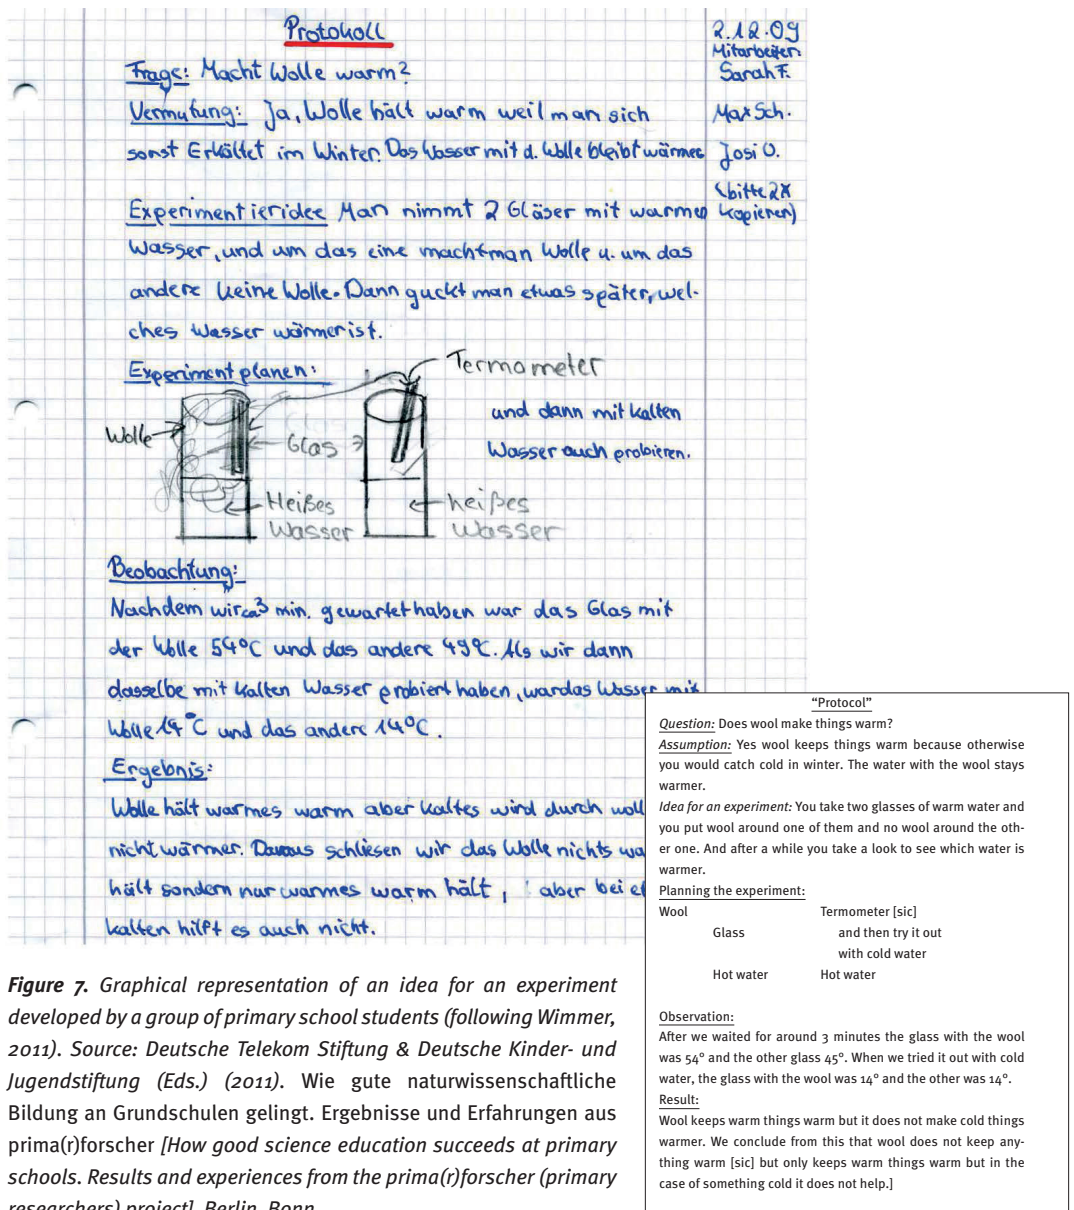 Protokoll
2.12.09
Mitarbeiter:
Sarah F.
Max Sch.
Josi O.
(bitte 2x
kopieren)
Frage: Macht Wolle warm?
Vermutung: Ja, Wolle hält warm weil man sich
sonst Erkältet im Winter. Das Wasser mit d. Wolle bleibt wärmer
Experimentieridee Man nimmt 2 Gläser mit warmen
Wasser, und um das eine macht man Wolle u. um das
andere keine Wolle. Dann guckt man etwas später, wel-
ches Wasser wärmer ist.
Experiment planen:
Termometer
und dann mit kalten
Wasser auch probieren.
Wolle
Glas
Heißes
Wasser
heißes
Wasser
Beobachtung:
Nachdem wir ca 3 min. gewartet haben war das Glas mit
der Wolle 54°C und das andere 49°C. Als wir dann
dasselbe mit kalten Wasser probiert haben, war das Wasser mit
Wolle 14°C und das andere 14°C.
Ergebnis:
Wolle hält warmes warm aber kaltes wird durch woll
nicht wärmer. Daraus schliesen wir das Wolle nichts wa
hält sondern nur warmes warm hält, aber bei et
kalten hilft es auch nicht.
“Protocol”
Question: Does wool make things warm?
Assumption: Yes wool keeps things warm because otherwise
you would catch cold in winter. The water with the wool stays
warmer.
Idea for an experiment: You take two glasses of warm water and
you put wool around one of them and no wool around the oth-
er one. And after a while you take a look to see which water is
warmer.
Planning the experiment:
Wool Termometer [sic]
Glass and then try it out
with cold water
Hot water Hot water
Observation:
After we waited for around 3 minutes the glass with the wool
was 54° and the other glass 45°. When we tried it out with cold
water, the glass with the wool was 14° and the other was 14°.
Result:
Wool keeps warm things warm but it does not make cold things
warmer. We conclude from this that wool does not keep any-
thing warm [sic] but only keeps warm things warm but in the
case of something cold it does not help.]
Figure 7. Graphical representation of an idea for an experiment
developed by a group of primary school students (following Wimmer,
2011). Source: Deutsche Telekom Stiftung & Deutsche Kinder- und
Jugendstiftung (Eds.) (2011). Wie gute naturwissenschaftliche
Bildung an Grundschulen gelingt. Ergebnisse und Erfahrungen aus
prima(r)forscher [How good science education succeeds at primary
schools. Results and experiences from the prima(r)forscher (primary
researchers) project]. Berlin, Bonn